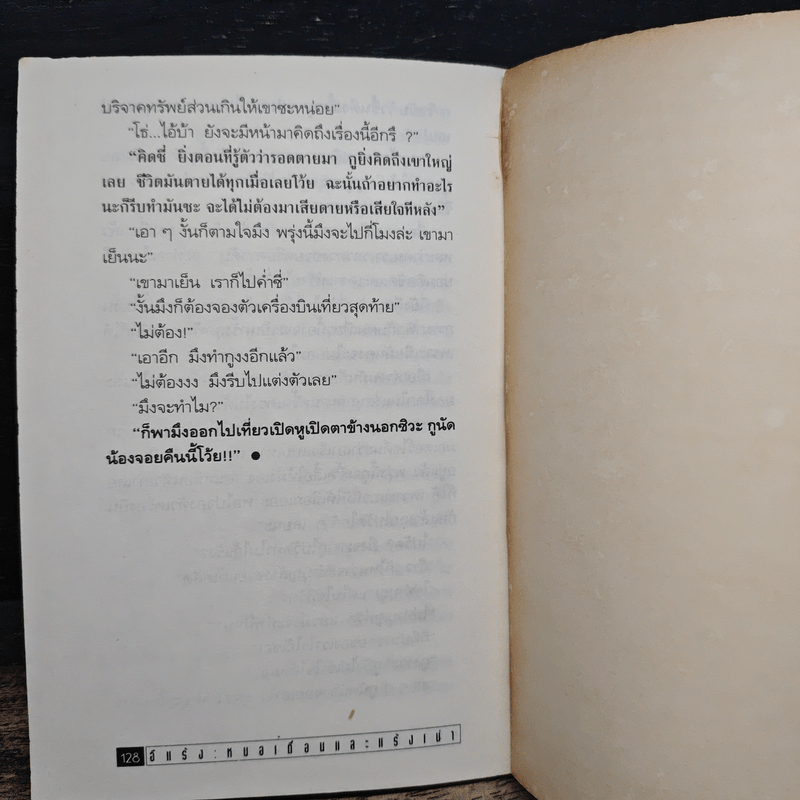 บริจาคทรัพย์ส่วนเกินให้เขาซะหน่อย"
"โธ่...ไอ้บ้า ยังจะมีหน้ามาคิดถึงเรื่องนี้อีกรึ ?"
"คิดซี่ ยิ่งตอนที่รู้ตัวว่ารอดตายมา กูยิ่งคิดถึงเขาใหญ่
เลย ชีวิตมันตายได้ทุกเมื่อเลยโว้ย ฉะนั้นถ้าอยากทำอะไร
นะก็รีบทำมันซะ จะได้ไม่ต้องมาเสียดายหรือเสียใจทีหลัง"
"เอา ๆ งั้นก็ตามใจมึง พรุ่งนี้มึงจะไปกี่โมงล่ะ เขามา
เย็นนะ"
"เขามาเย็น เราก็ไปค่ำซี่"
"งั้นมึงก็ต้องจองตัวเครื่องบินเที่ยวสุดท้าย"
"ไม่ต้อง!"
"เอาอีก มึงทำกูงงอีกแล้ว"
"ไม่ต้องงง มึงรีบไปแต่งตัวเลย"
"มึงจะทำไม?"
"ก็พามึงออกไปเที่ยวเปิดหูเปิดตาข้างนอกซิวะ กูนัด
น้องจอยคืนนี้โว้ย!!" ●
128 อีแร้ง:หมอเถื่อนและแร้งเฒ่า